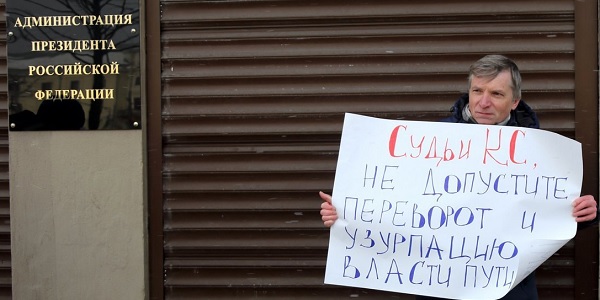 АДМИНИСТРАЦИЯ
ПРЕЗИДЕНТА
РОССИЙСКОЙ
ФЕДЕРАЦИИ
СУДЬИ КС,
НЕ ДОПУСТИТЕ
ПЕРЕВОРОТ И
УЗУРПАЦИЮ
ВЛАСТИ ПУТИ